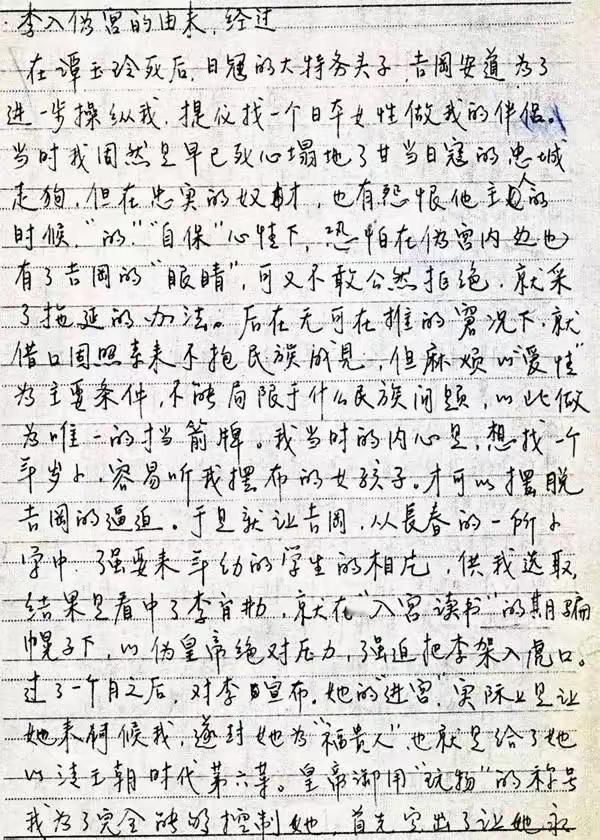 李入伪宫的由来，经过
在谭玉玲死后，日寇的大特务头子，吉岡安道为了
进一步操纵我，提仪找一个日本女性做我的伴侣。
当时我固然是早已死心塌地了甘当日寇的忠城
走狗，但在忠实的奴才，也有怨恨他主人的
时候，“的”“自保”心情下，恐怕在伪宫内边也
有了吉岡的“眼睛”，可又不敢公然拒绝，就采
了拖延的办法。后在无可在推的窘况下，就
借口固照素来不抱民族成見，但麻烦以“爱情”
为主要条件，不能局限于什么民族问题，以此做
为唯一的挡箭牌。我当时的内心是，想找一个
年岁小，容易听我摆布的女孩子。才可以摆脱
吉岡的逼迫。于是就让吉岡，从長春的一所小
学中，强要来年幼的学生的相片，供我选取，
结果是看中了李育勤，就在“入宮读书”的期骗
幌子下，以伪皇帝绝对压力，强迫把李架入虎口。
过了一个月之后，对李宣布，她的“进宫”实际上是让
她来伺候我，遂封她为“福贵人”也就是给了她
以清王朝时代第六等。皇帝御用“玩物”的称号
我为了完全能够控制她，首先定出了让她永